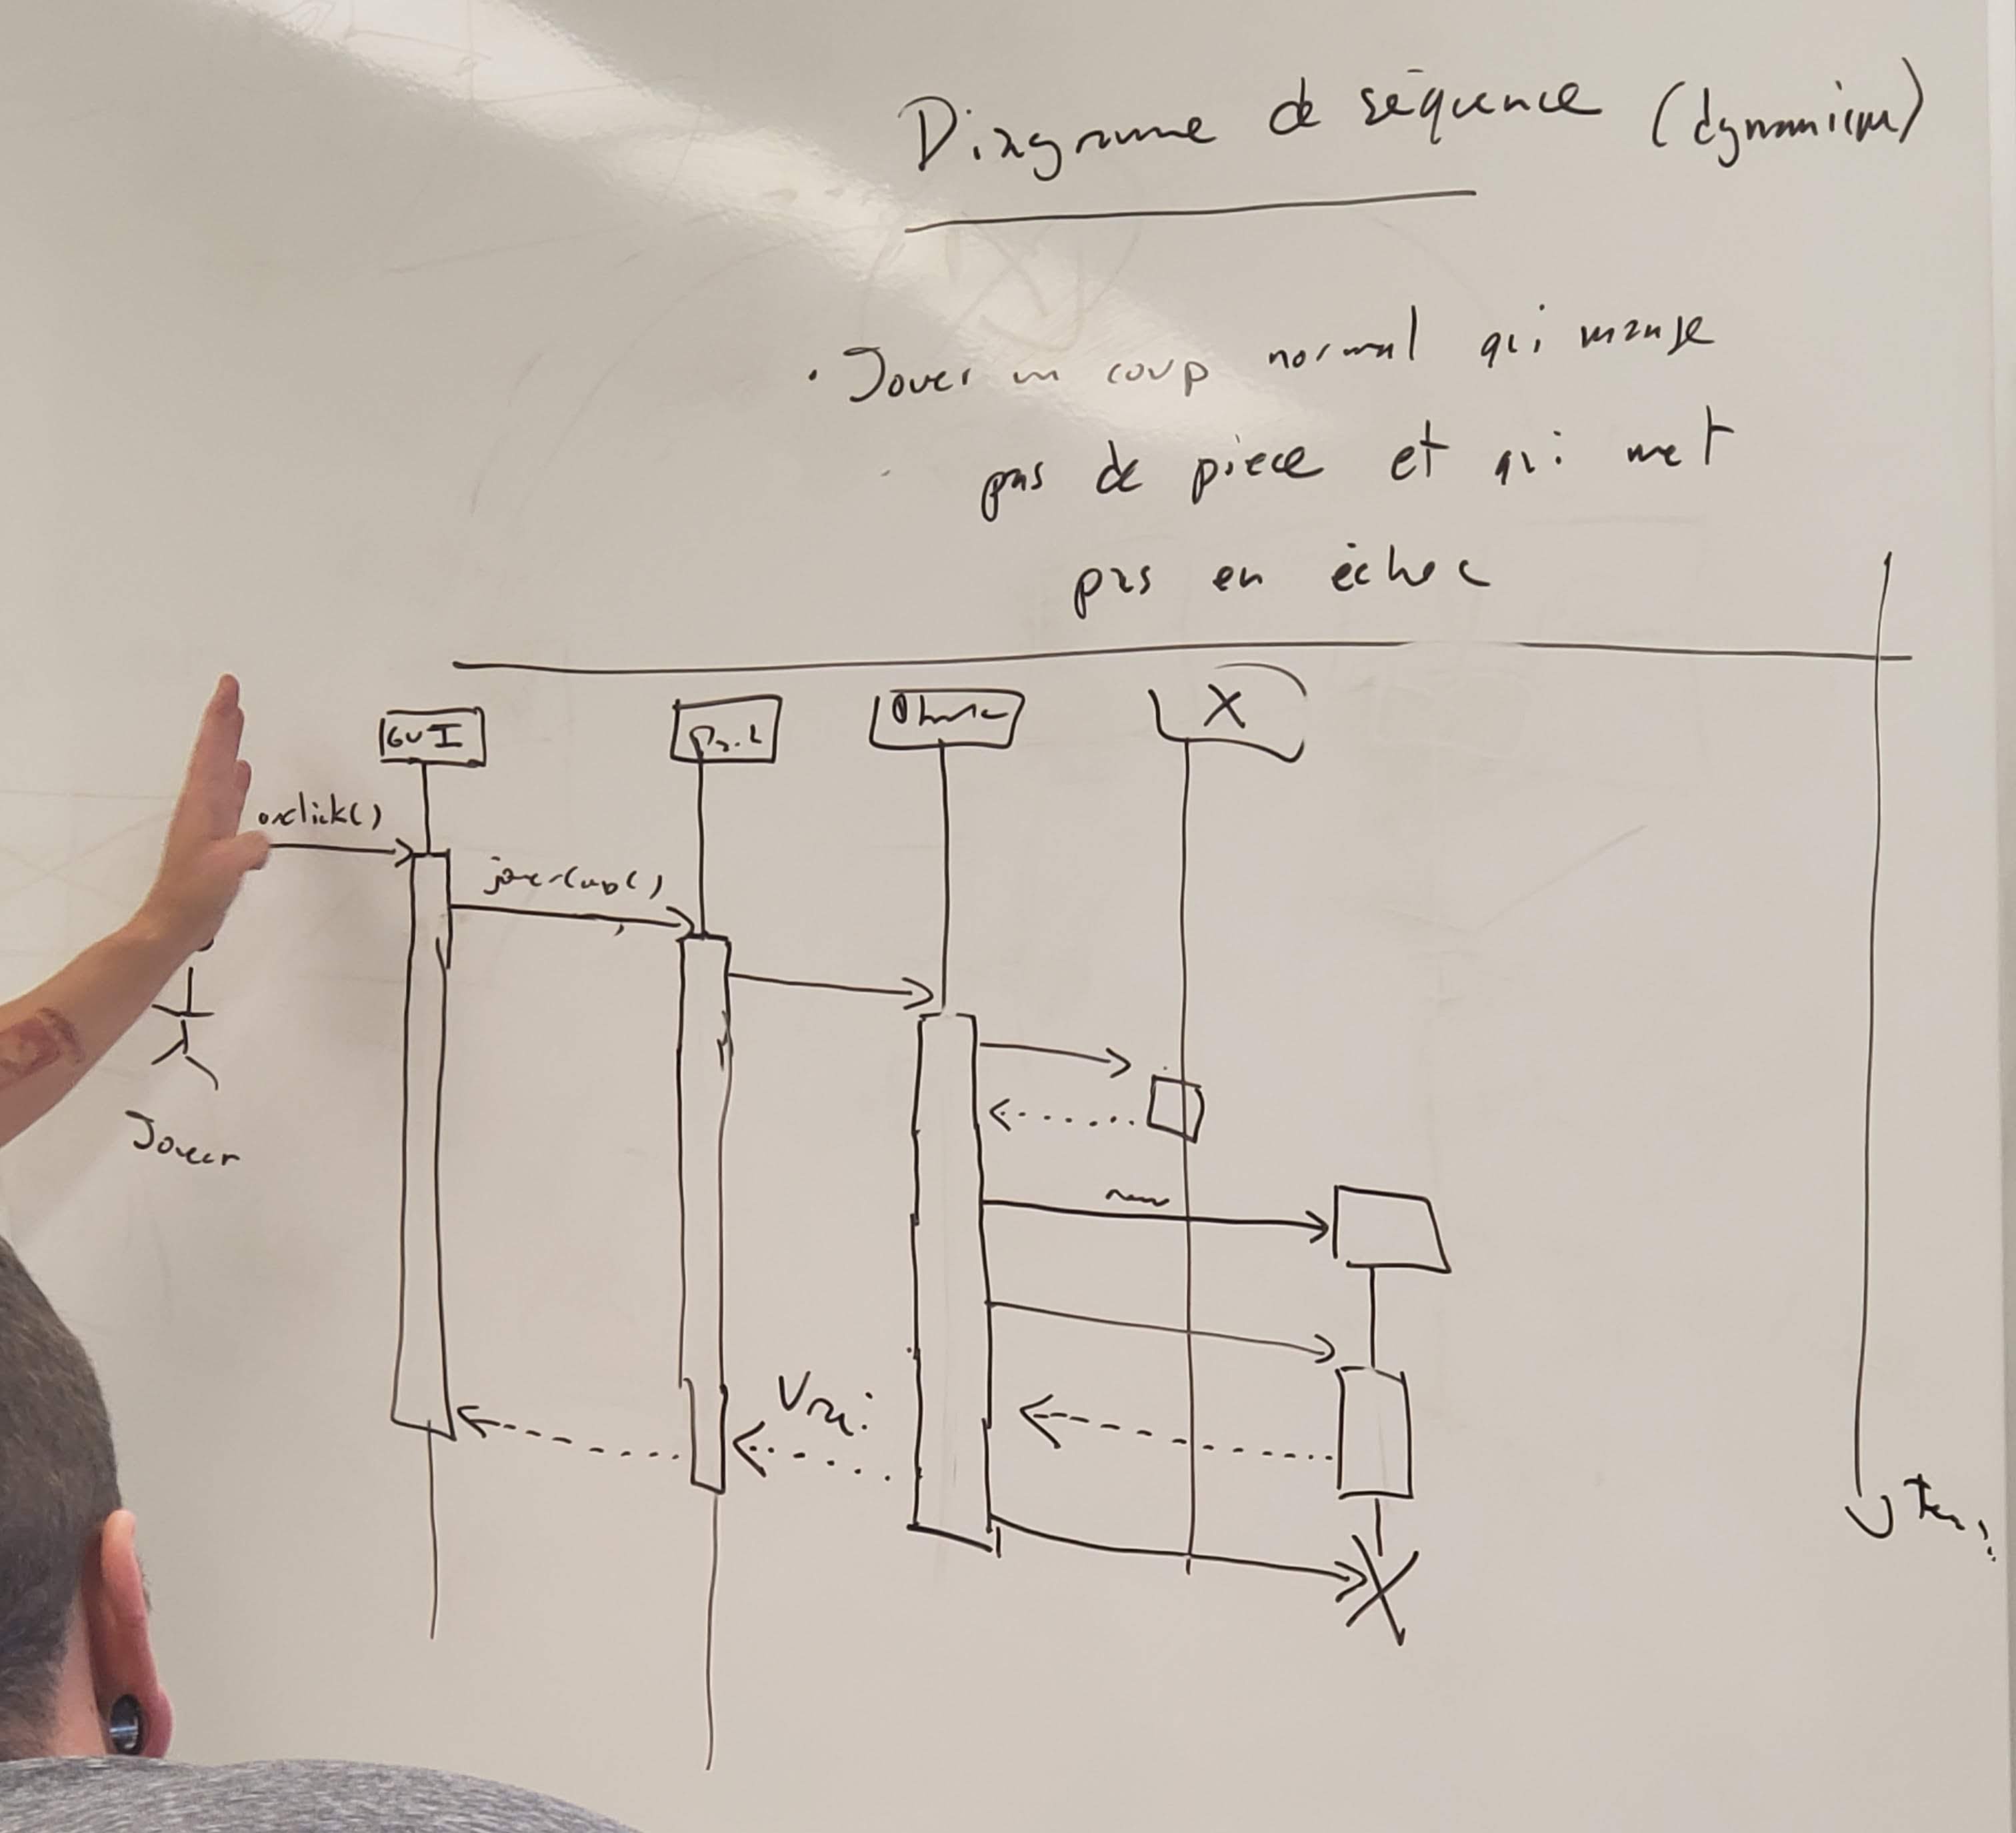 Diagramme de séquence (dynamique)
• Jouer un coup normal qui mange
pas de pièce et qui met
pas en échec
GUI
X
onclick()
jouerCoup()
Joueur
new
Vrai